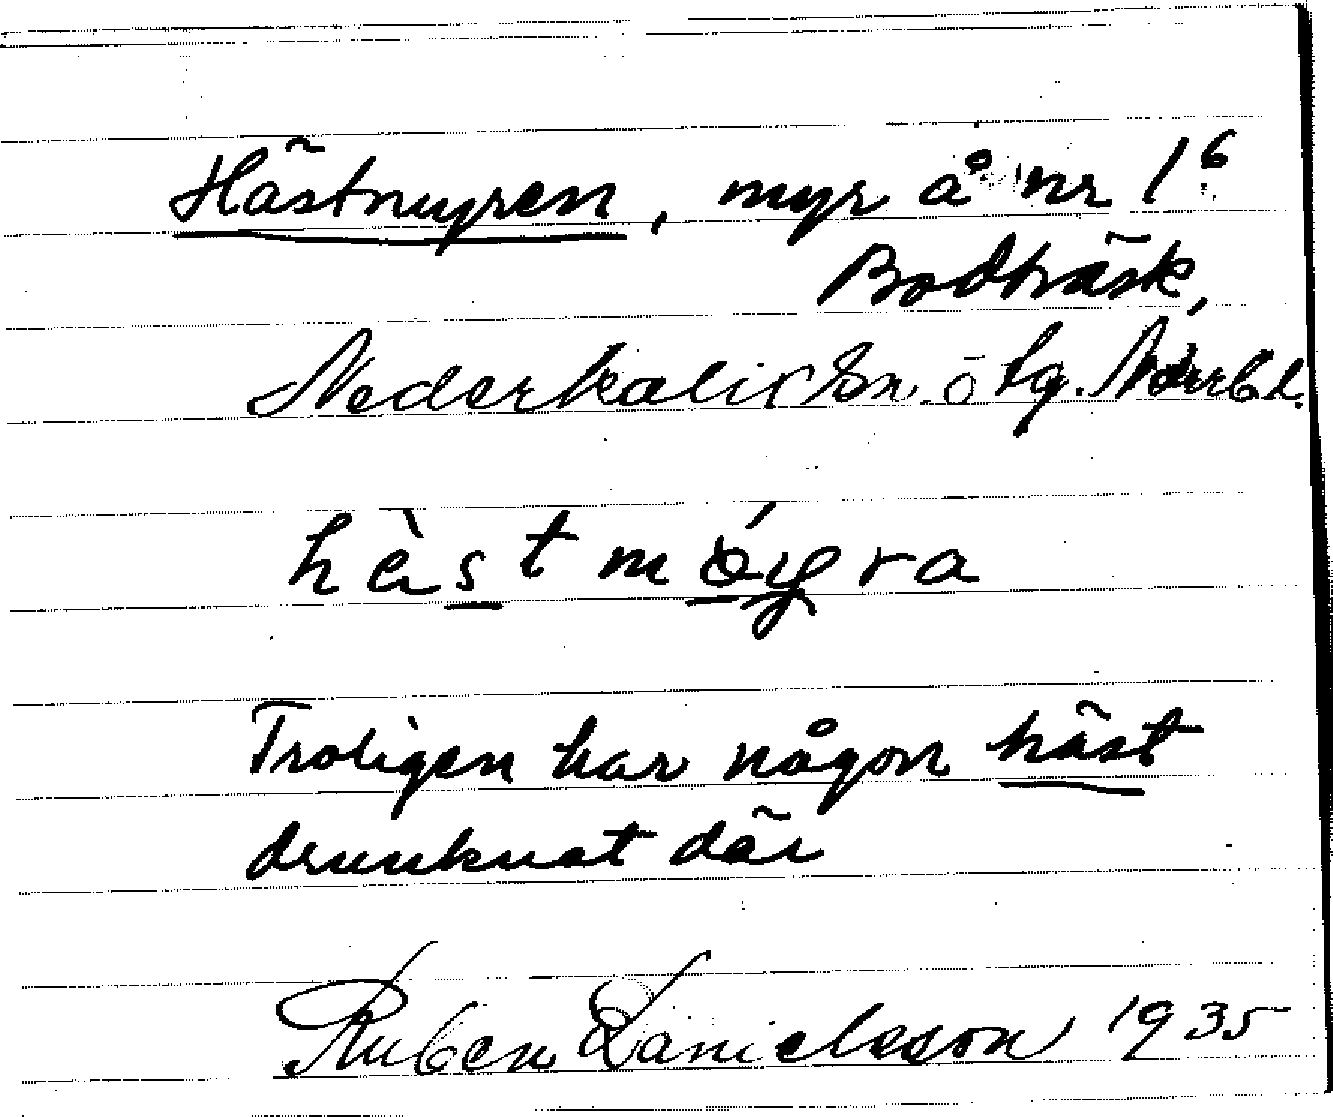 Hästmyren, myr å nr 1⁶
Bodträsk,
Nederkalix sn. ö tg. Norrb. l.
hèstmóyra
Troligen har någon häst
drunknat där
Ruben Danielsson 1935